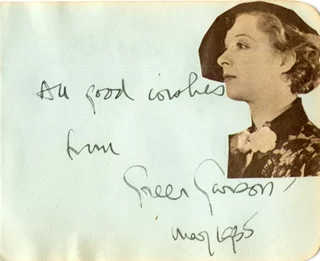 All good wishes
from
Greer Garson
May 1955